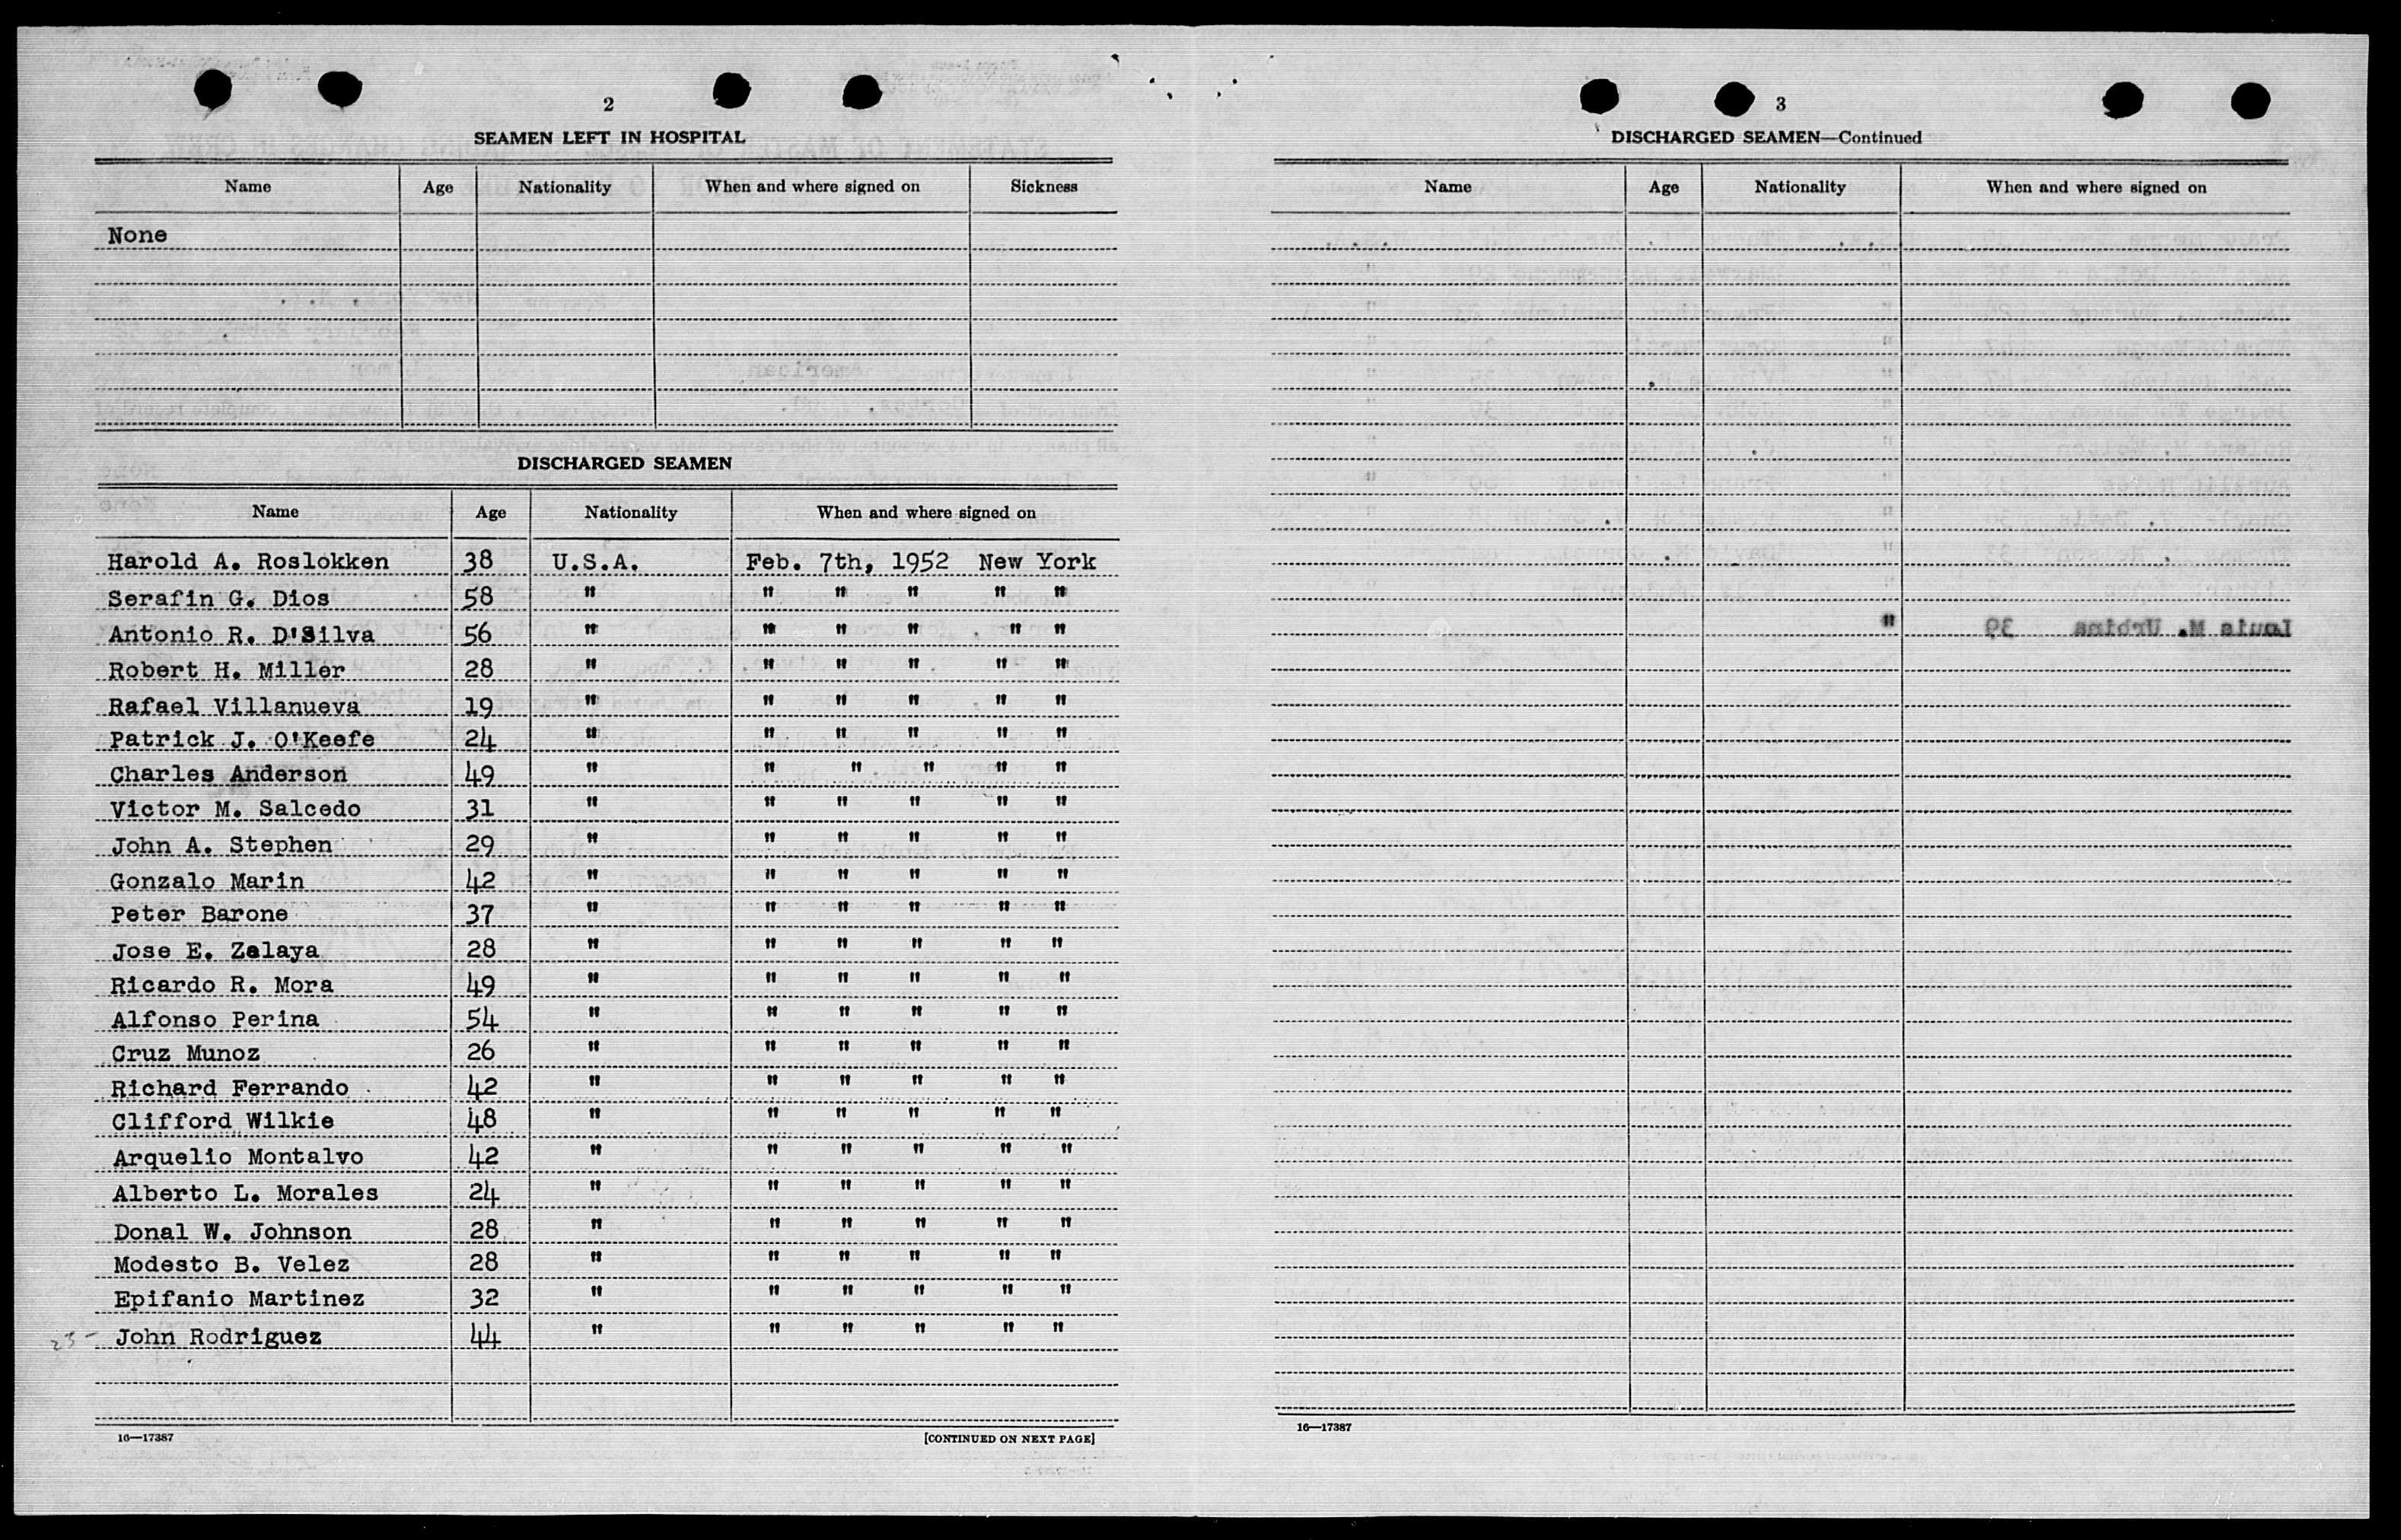 2
SEAMEN LEFT IN HOSPITAL
Name Age Nationality When and where signed on Sickness
None
DISCHARGED SEAMEN
Name Age Nationality When and where signed on
Harold A. Roslokken 38 U.S.A. Feb. 7th, 1952 New York
Serafin G. Dios 58 " " " " " "
Antonio R. D'Silva 56 " " " " " "
Robert H. Miller 28 " " " " " "
Rafael Villanueva 19 " " " " " "
Patrick J. O'Keefe 24 " " " " " "
Charles Anderson 49 " " " " " "
Victor M. Salcedo 31 " " " " " "
John A. Stephen 29 " " " " " "
Gonzalo Marin 42 " " " " " "
Peter Barone 37 " " " " " "
Jose E. Zelaya 28 " " " " " "
Ricardo R. Mora 49 " " " " " "
Alfonso Perina 54 " " " " " "
Cruz Munoz 26 " " " " " "
Richard Ferrando 42 " " " " " "
Clifford Wilkie 48 " " " " " "
Arquelio Montalvo 42 " " " " " "
Alberto L. Morales 24 " " " " " "
Donal W. Johnson 28 " " " " " "
Modesto B. Velez 28 " " " " " "
Epifanio Martinez 32 " " " " " "
23- John Rodriguez 44 " " " " " "
16—17387 [CONTINUED ON NEXT PAGE]
3
DISCHARGED SEAMEN—Continued
Name Age Nationality When and where signed on
" 39 Louis M. Urbina
16—17387